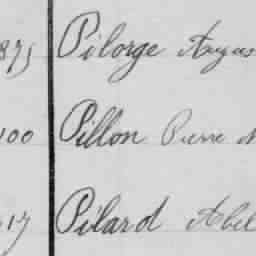 875 Pilorge Augus
100 Pillon Pierre M
17 Pilard Abel